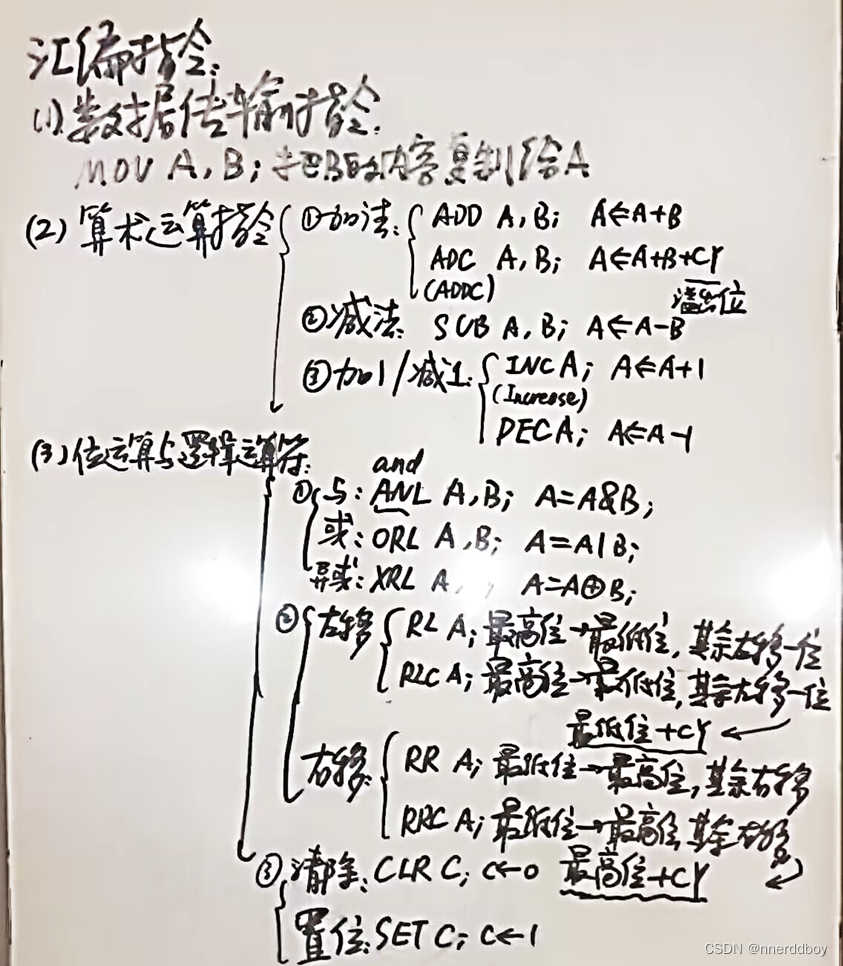 汇编指令:
(1)数据传输指令:
MOV A, B; 把B的内容复制给A
(2) 算术运算指令 ①加法: ADD A, B; A⇐A+B
ADC A, B; A⇐A+B+CY
(ADDC) 溢出位
②减法: SUB A, B; A⇐A-B
③加1/减1: INC A; A⇐A+1
(Increase)
DEC A; A⇐A-1
(3)位运算与逻辑运算符:
and
①与: ANL A, B; A=A&B;
或: ORL A, B; A=A|B;
异或: XRL A, A=A⊕B;
② 左移 RL A; 最高位→最低位, 其余左移一位
RLC A; 最高位→最低位, 其余左移一位
最低位+CY ←
右移: RR A; 最低位→最高位, 其余右移
RRC A; 最低位→最高位, 其余右移
③清除: CLR C; C←0 最高位+CY
置位: SET C; C←1
CSDN @nnerddboy